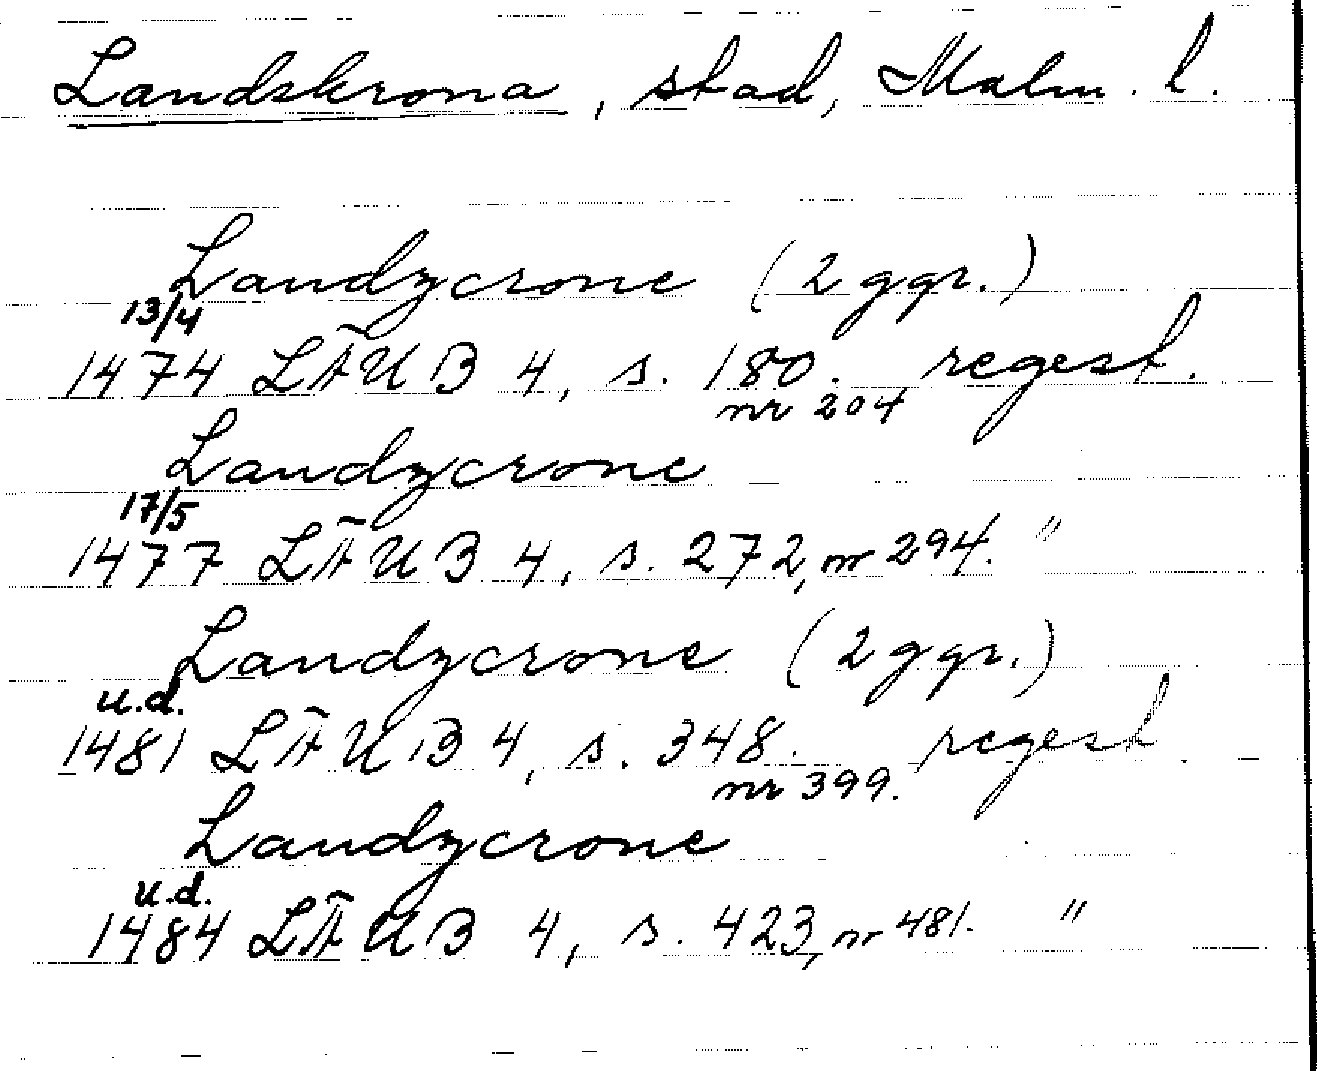 Landskrona, stad, Malm. l.
Landzcrone (2 ggr.)
13/4
1474 LÄUB 4, s. 180. regest.
nr 204
Landzcrone
17/5
1477 LÄUB 4, s. 272, nr 294. "
Landzcrone (2 ggr.)
u.d.
1481 LÄUB 4, s. 348. regest.
nr 399.
Landzcrone
u.d.
1484 LÄUB 4, s. 423, nr 481. "